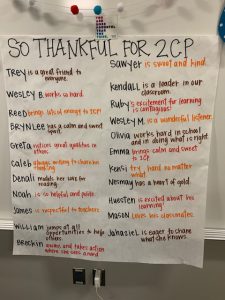 SO THANKFUL FOR 2CP
Trey is a great friend to
everyone.
Wesley B. works so hard.
Reed brings lots of energy to 2CP!
Brynlee has a calm and sweet
spirit.
Greta notices great qualities in
others.
Caleb always willing to share his
thinking
Denali models her love for
reading.
Noah is so helpful and polite.
James is respectful to teachers.
William jumps at all
opportunities to help
others.
Breckin and takes action
where she sees a need
Sawyer is sweet and kind.
Kendall is a leader in our
classroom.
Ruby's excitement for learning
is contagious!
Wesley M. is a wonderful listener.
Olivia works hard in school
and in doing what is right.
Emma brings calm and sweet
to 2CP.
Kensi try hard no matter
what.
Nesmay has a heart of gold.
Huesten is excited about his
learning!
Mason loves his classmates.
Jahaziel is eager to share
what she knows.